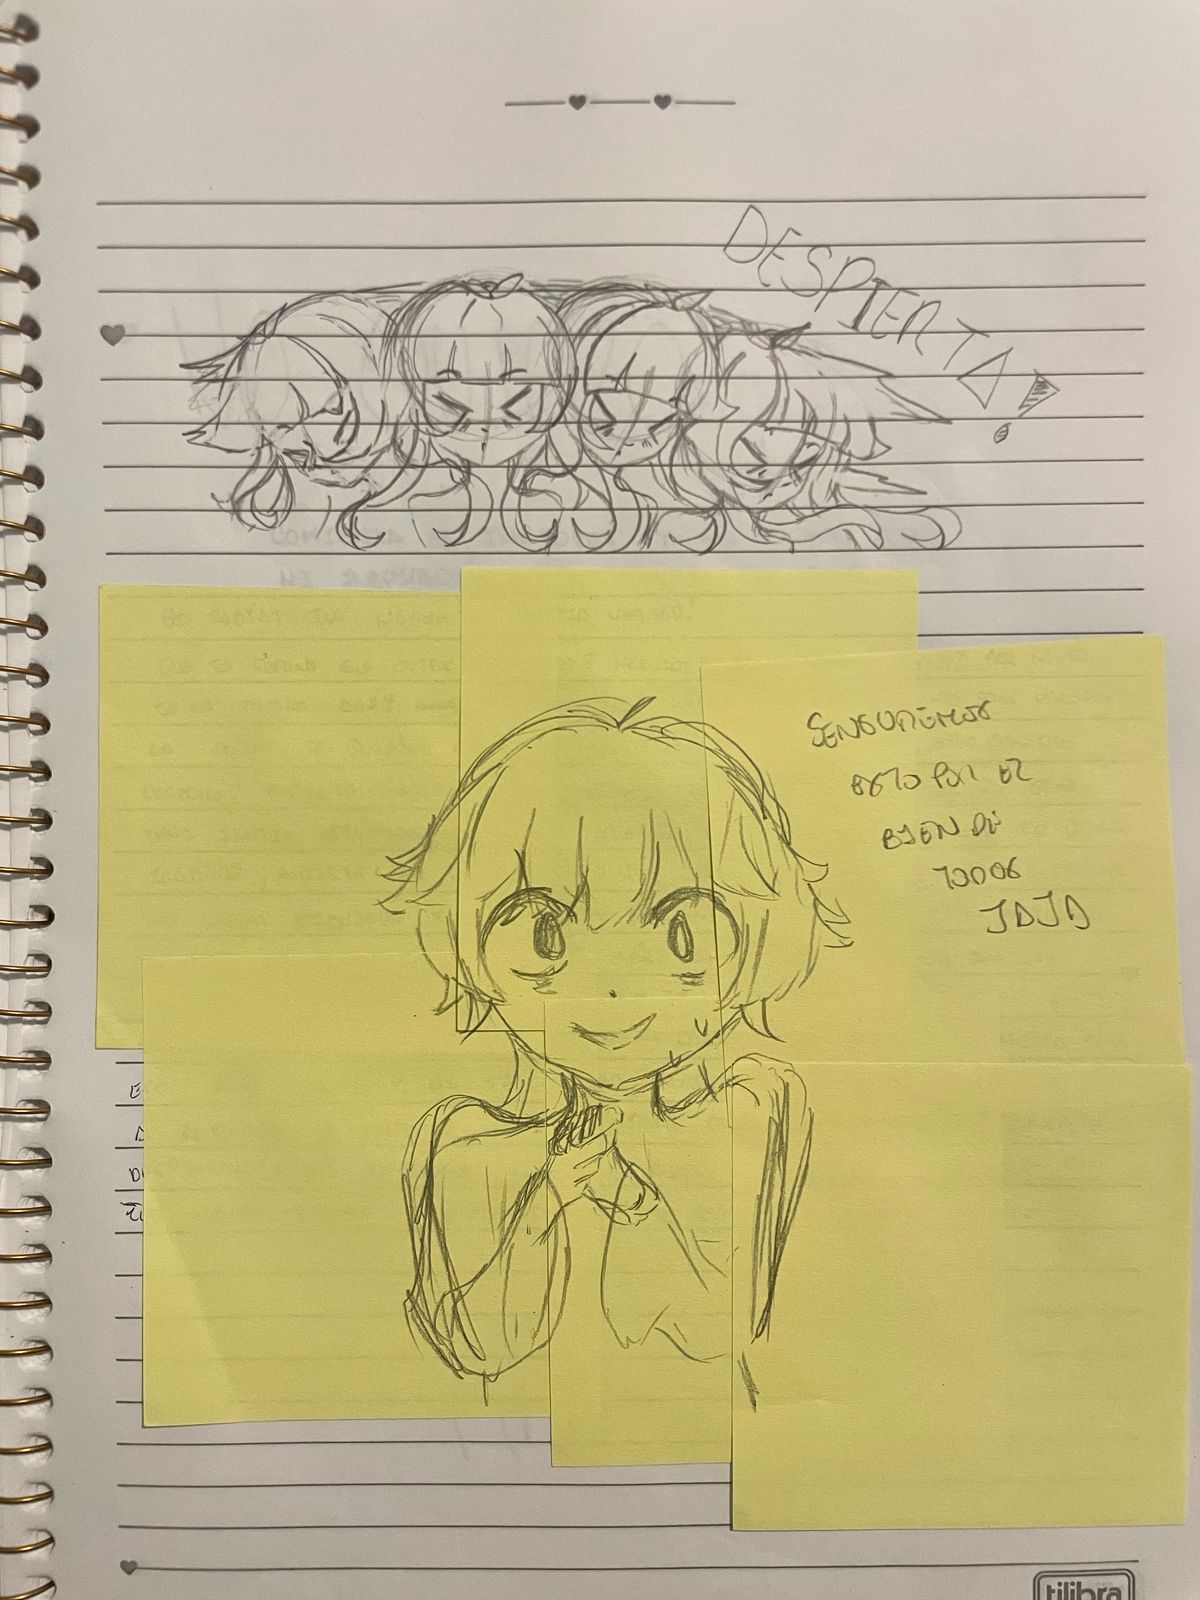 DESPIERTA!
SENSUREMOS
ESTO POR EL
BIEN DE
TODOS
JAJA
tilibra